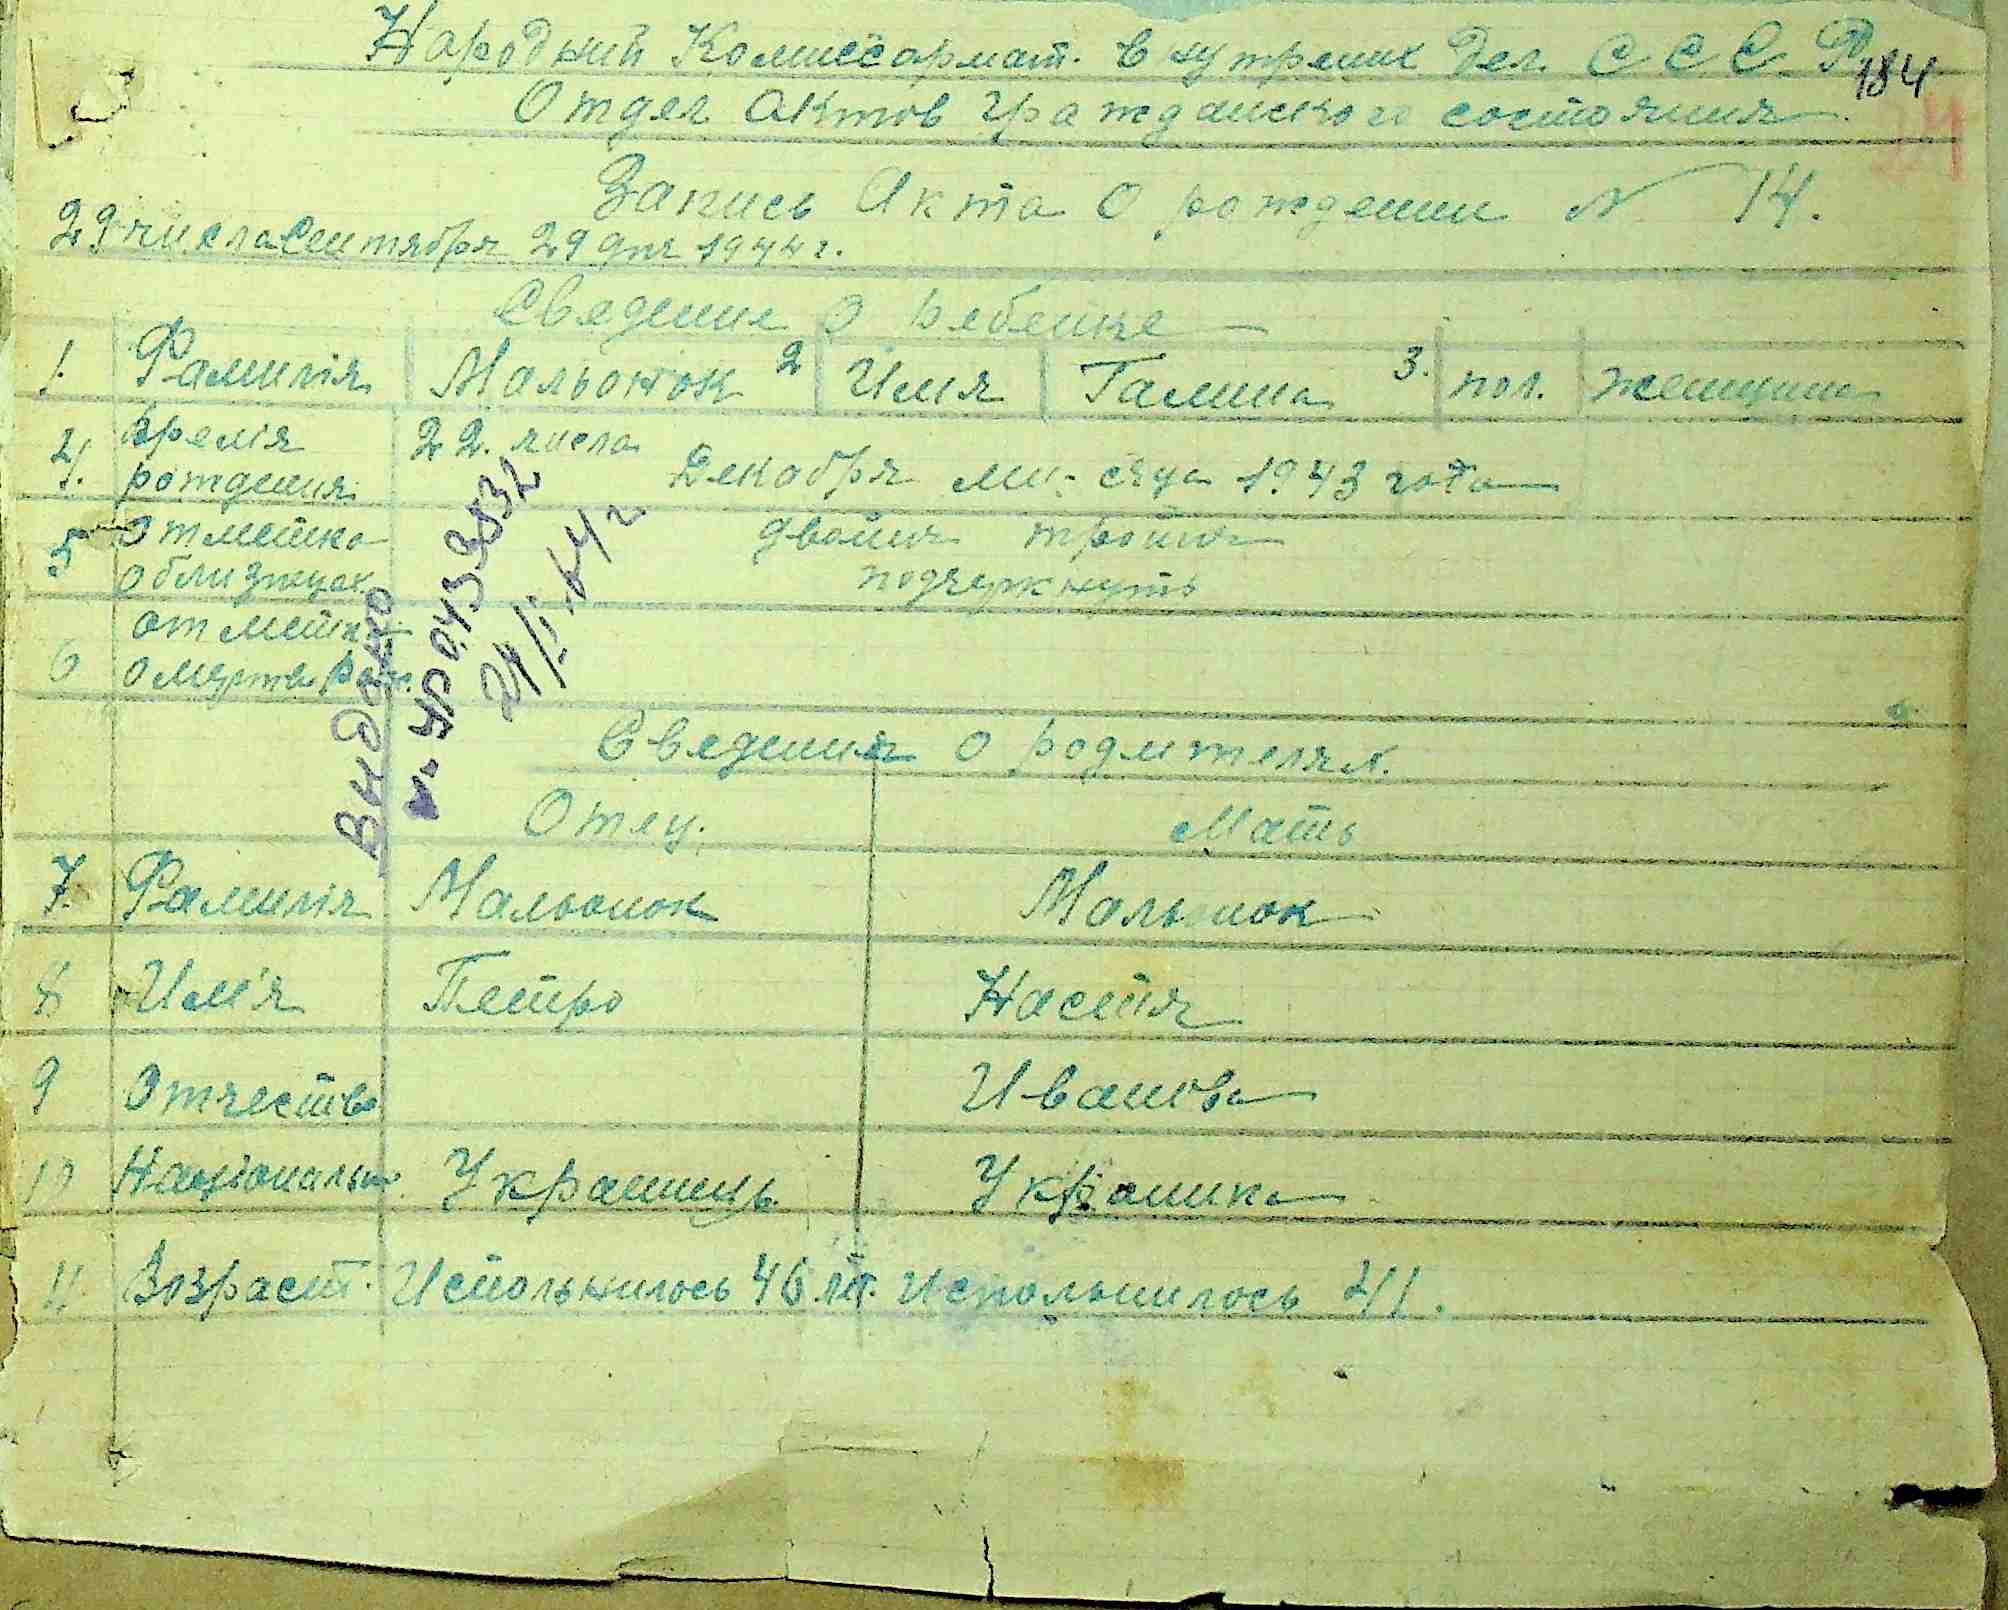 Народний Комиссариат. Внутрених Дел. С С С Р
184
Отдел актов гражданского состояния
Запись Акта о рождении N 14.
29 числа Сентября 29 дня 1944 г.
Сведение о ребенке
1. Фамилія Мальонок 2 Имя Галина 3. пол. женщина
4. Время рождения 22. числа Декабря ми-сяца 1943 года
5 Отметка о близнцах двойня тройня подчеркнуть
6 отметка о мертв рож.
Видано
УР 0433832
24/I.64 г
Сведения о родителях.
Отец. Мать
7. Фамилія Мальонок Мальонок
8 Им'я Петро Настя
9 Отчество Ивановна
10 Національн. Украинець Украинка
11. Возраст. Испольнилось 46 лет. Испольнилось 41.